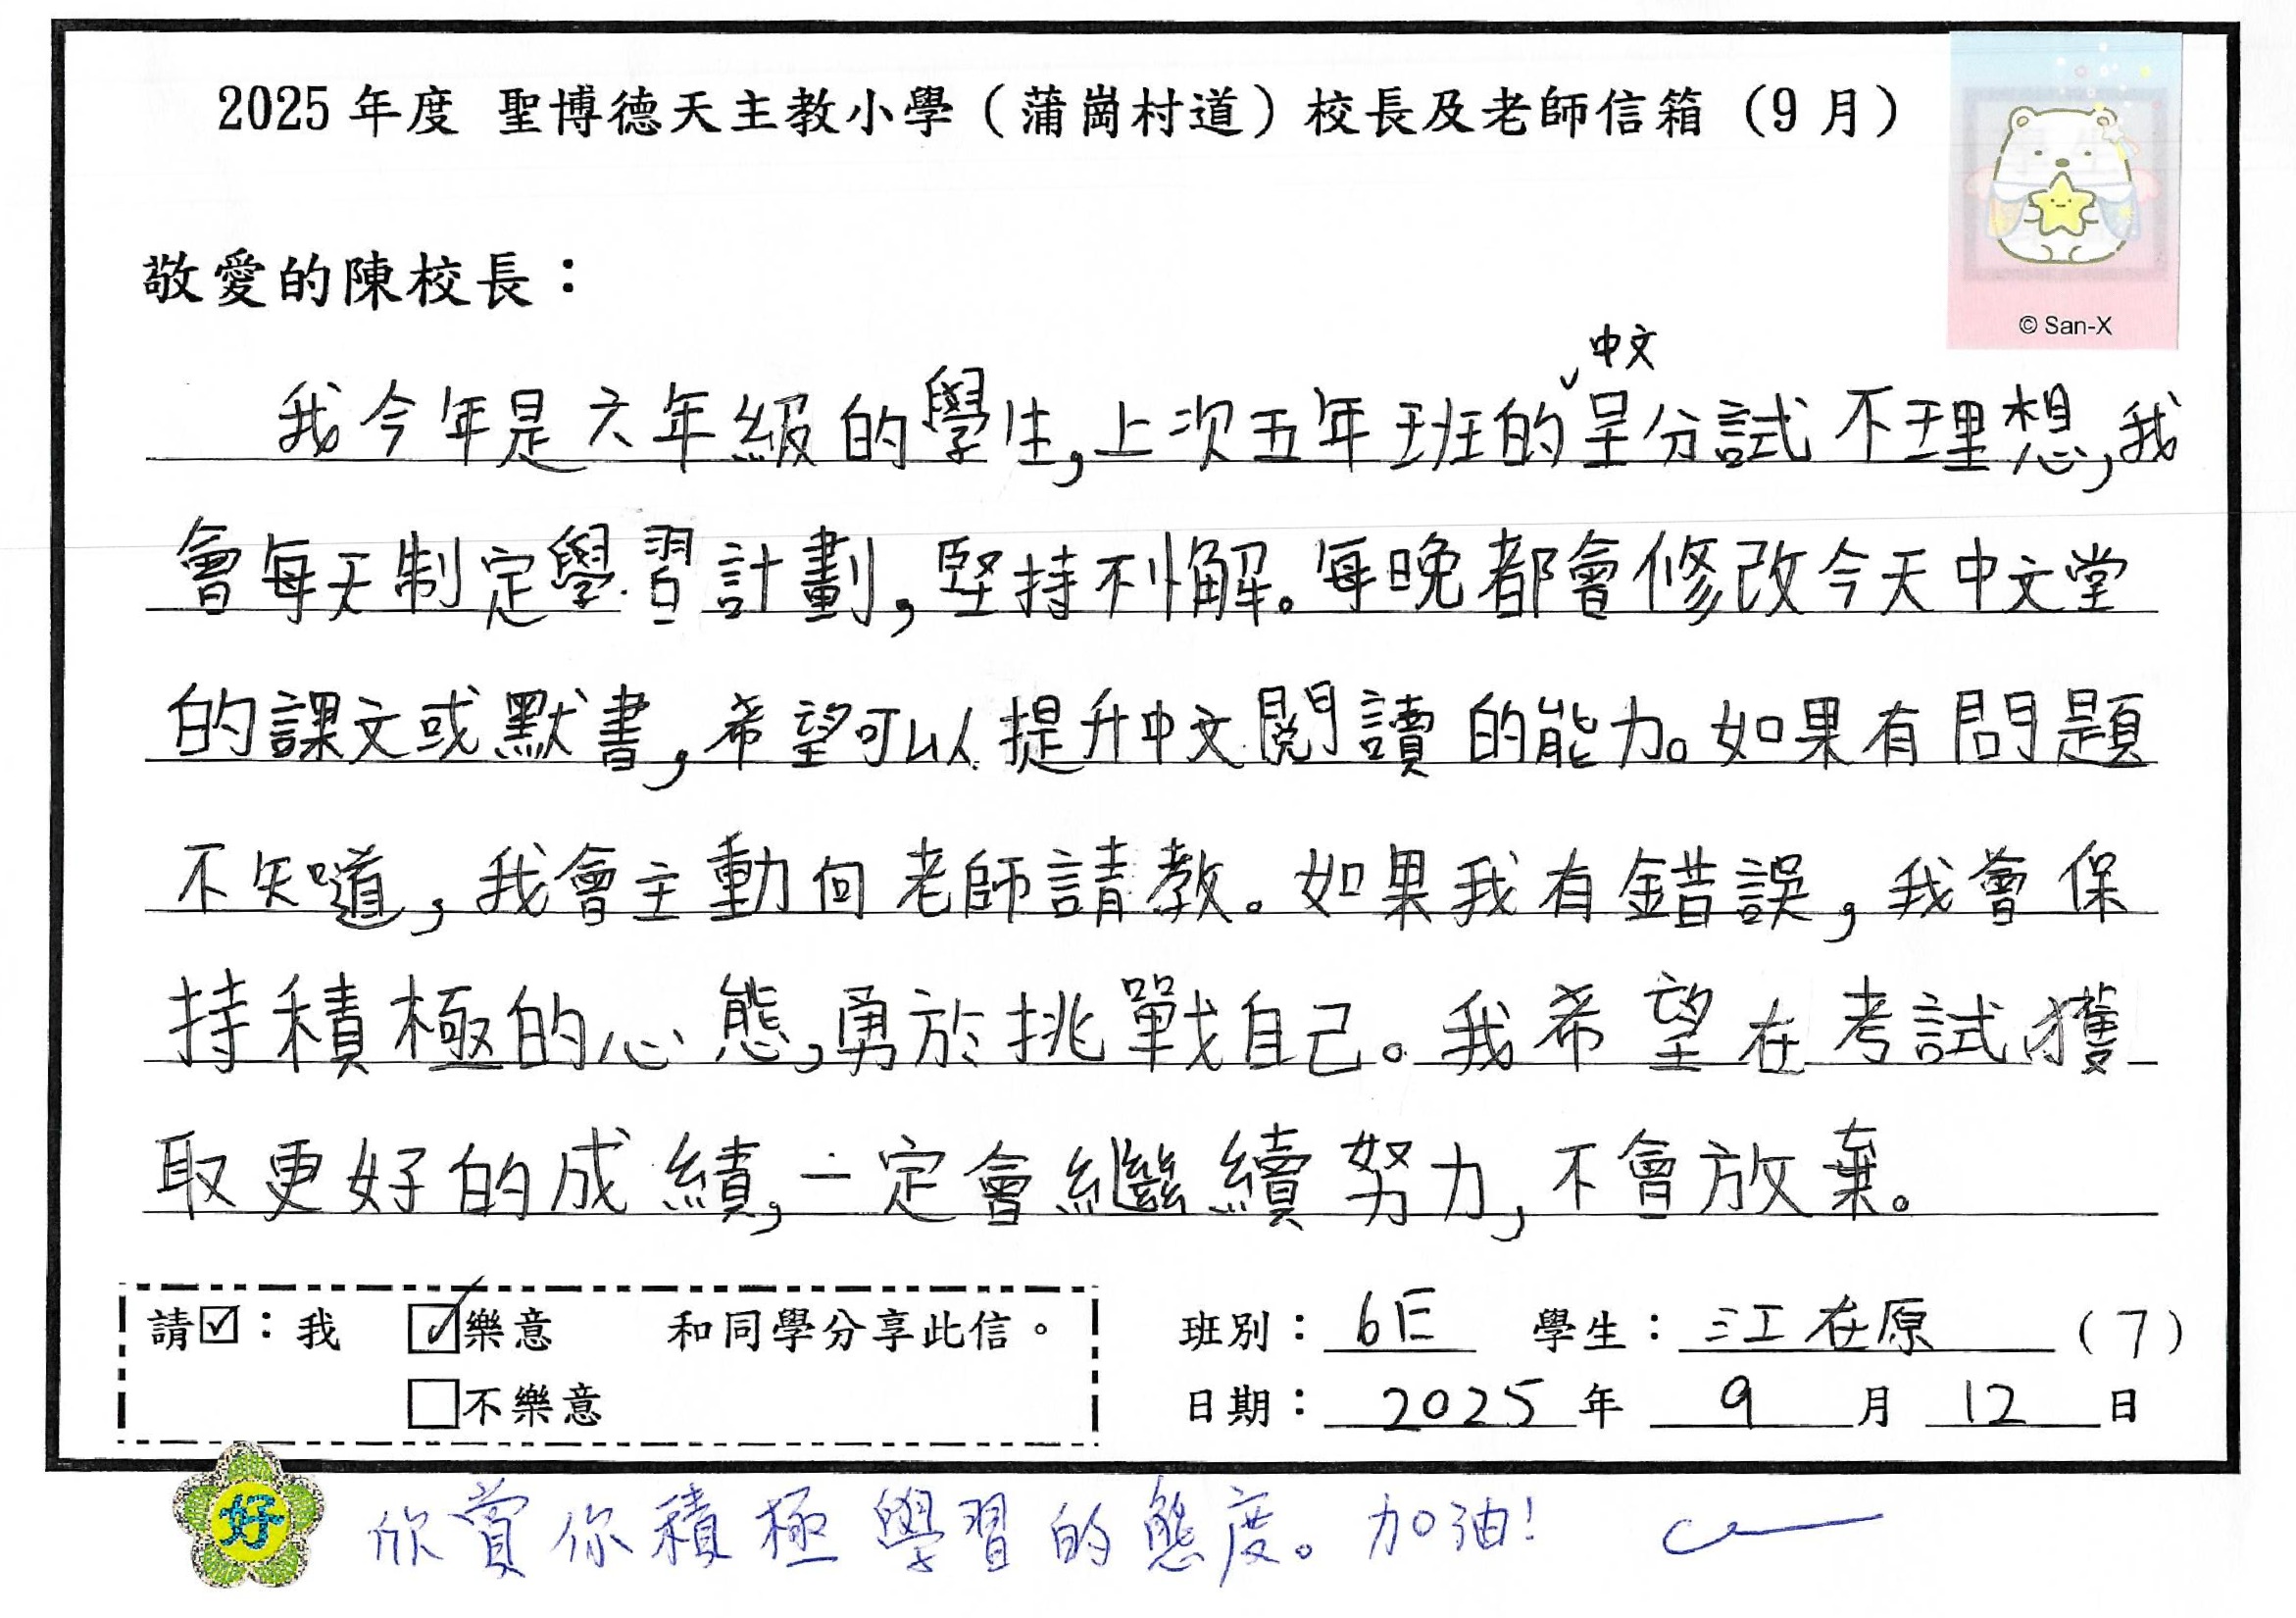 2025 年度 聖博德天主教小學（蒲崗村道）校長及老師信箱（9 月）
© San-X
敬愛的陳校長：
中文
我今年是六年級的學生,上次五年班的呈分試不理想,我
會每天制定學習計劃,堅持不懈。每晚都會修改今天中文堂
的課文或默書,希望可以提升中文閱讀的能力。如果有問題
不知道,我會主動向老師請教。如果我有錯誤,我會保
持積極的心態,勇於挑戰自己。我希望在考試獲
取更好的成績,一定會繼續努力,不會放棄。
請☑：我 ☑樂意 和同學分享此信。
□不樂意
班別：6E 學生：江在原（7）
日期：2025年 9月 12日
好
欣賞你積極學習的態度。加油!